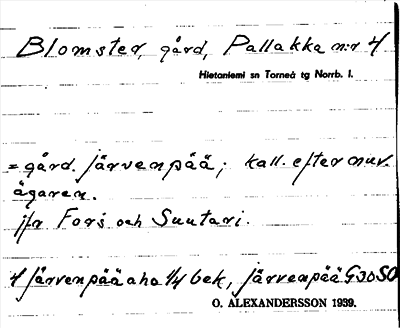 Blomster, gård, Pallakka n:r 4
Hietaniemi sn Torneå tg Norrb. l.
= gård. Järvenpää; kall. efter nuv.
ägaren.
jfr Fors och Suutari.
4 Järvenpää aha 1/4 bek, Järvenpää G30SO
O. ALEXANDERSSON 1939.